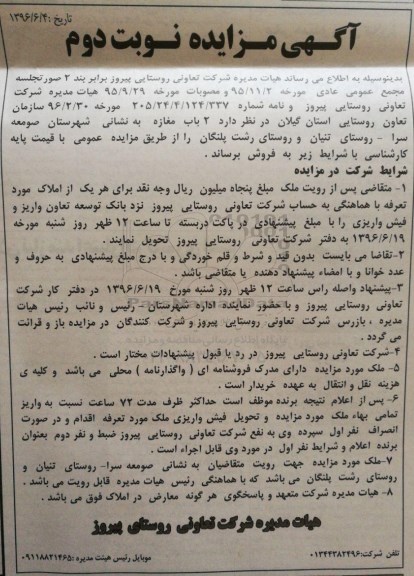 تاریخ :۱۳۹۶/۶/۴
آگهی مزایده نوبت دوم
بدینوسیله به اطلاع می رساند هیات مدیره شرکت تعاونی روستایی پیروز برابر بند ۲ صورتجلسه
مجمع عمومی عادی مورخه ۹۵/۱۱/۲ و مصوبات مورخه ۹۵/۹/۲۹ هیات مدیره شرکت
تعاونی روستایی پیروز و نامه شماره ۲۰۵/۲۴/۴/۱۲۴/۳۳۷ مورخه ۹۶/۲/۳۰ سازمان
تعاون روستایی استان گیلان در نظر دارد ۲ باب مغازه به نشانی شهرستان صومعه
سرا - روستای تنیان و روستای رشت پلنگان را از طریق مزایده عمومی با قیمت پایه
کارشناسی با شرایط زیر به فروش برساند .
شرایط شرکت در مزایده
۱- متقاضی پس از رویت ملک مبلغ پنجاه میلیون ریال وجه نقد برای هر یک از املاک مورد
تعرفه با هماهنگی به حساب شرکت تعاونی روستایی پیروز نزد بانک توسعه تعاون واریز و
فیش واریزی را با مبلغ پیشنهادی در پاکت دربسته تا ساعت ۱۲ ظهر روز شنبه مورخه
۱۳۹۶/۶/۱۹ به دفتر شرکت تعاونی روستایی پیروز تحویل نمایند .
۲-تقاضا می بایست بدون قید و شرط و قلم خوردگی و با درج مبلغ پیشنهادی به حروف و
عدد خوانا و با امضاء پیشنهاد دهنده یا متقاضی باشد .
۳-پیشنهاد واصله راس ساعت ۱۲ ظهر روز شنبه مورخ ۱۳۹۶/۶/۱۹ در دفتر کار شرکت
تعاونی روستایی پیروز و با حضور نماینده اداره شهرستان - رئیس و نائب رئیس هیات
مدیره ، بازرس شرکت تعاونی روستایی پیروز و شرکت کنندگان در مزایده باز و قرائت
می گردد .
۴-شرکت تعاونی روستایی پیروز در رد یا قبول پیشنهادات مختار است .
۵- ملک مورد مزایده دارای مدرک فروشنامه ای ( واگذارنامه ) محلی می باشد و کلیه ی
هزینه نقل و انتقال به عهده خریدار است .
۶- پس از اعلام نتیجه برنده موظف است حداکثر ظرف مدت ۷۲ ساعت نسبت به واریز
تمامی بهاء ملک مورد مزایده و تحویل فیش واریزی ملک مورد تعرفه اقدام و در صورت
انصراف نفر اول سپرده وی به نفع شرکت تعاونی روستایی پیروز ضبط و نفر دوم بعنوان
برنده اعلام و شرایط نفر اول در مورد وی قابل اجراء است .
۷-ملک مورد مزایده جهت رویت متقاضیان به نشانی صومعه سرا- روستای تنیان و
روستای رشت پلنگان می باشد که با هماهنگی رئیس هیات مدیره قابل رویت می باشد .
۸- هیات مدیره شرکت متعهد و پاسخگوی هر گونه معارض در املاک فوق می باشد .
هیات مدیره شرکت تعاونی روستای پیروز
تلفن شرکت:۰۱۳۴۴۳۸۲۴۹۶
موبایل رئیس هیئت مدیره :۰۹۱۱۸۸۲۱۴۶۵